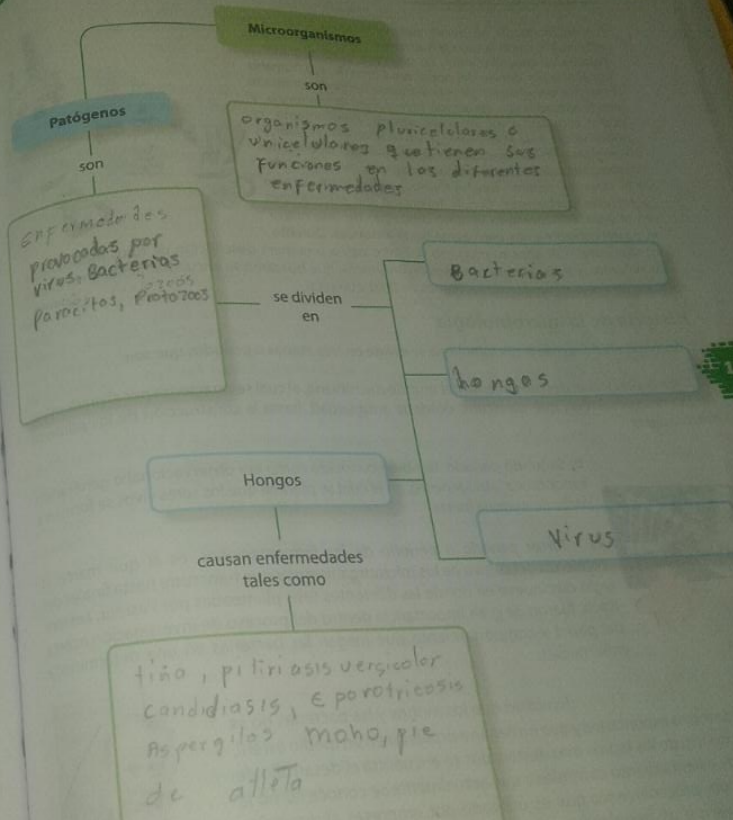 Microorganismos
son
organismos pluricelulares o
unicelulares que tienen sus
funciones en las diferentes
enfermedades
Patógenos
son
enfermedades
provocadas por
virus, Bacterias
paracitos, Protozoos
se dividen
en
Bacterias
hongos
Hongos
Virus
causan enfermedades
tales como
tiña, pitiriasis versicolor
candidiasis, Eporotricosis
Aspergilos moho, pie
de atleta
1